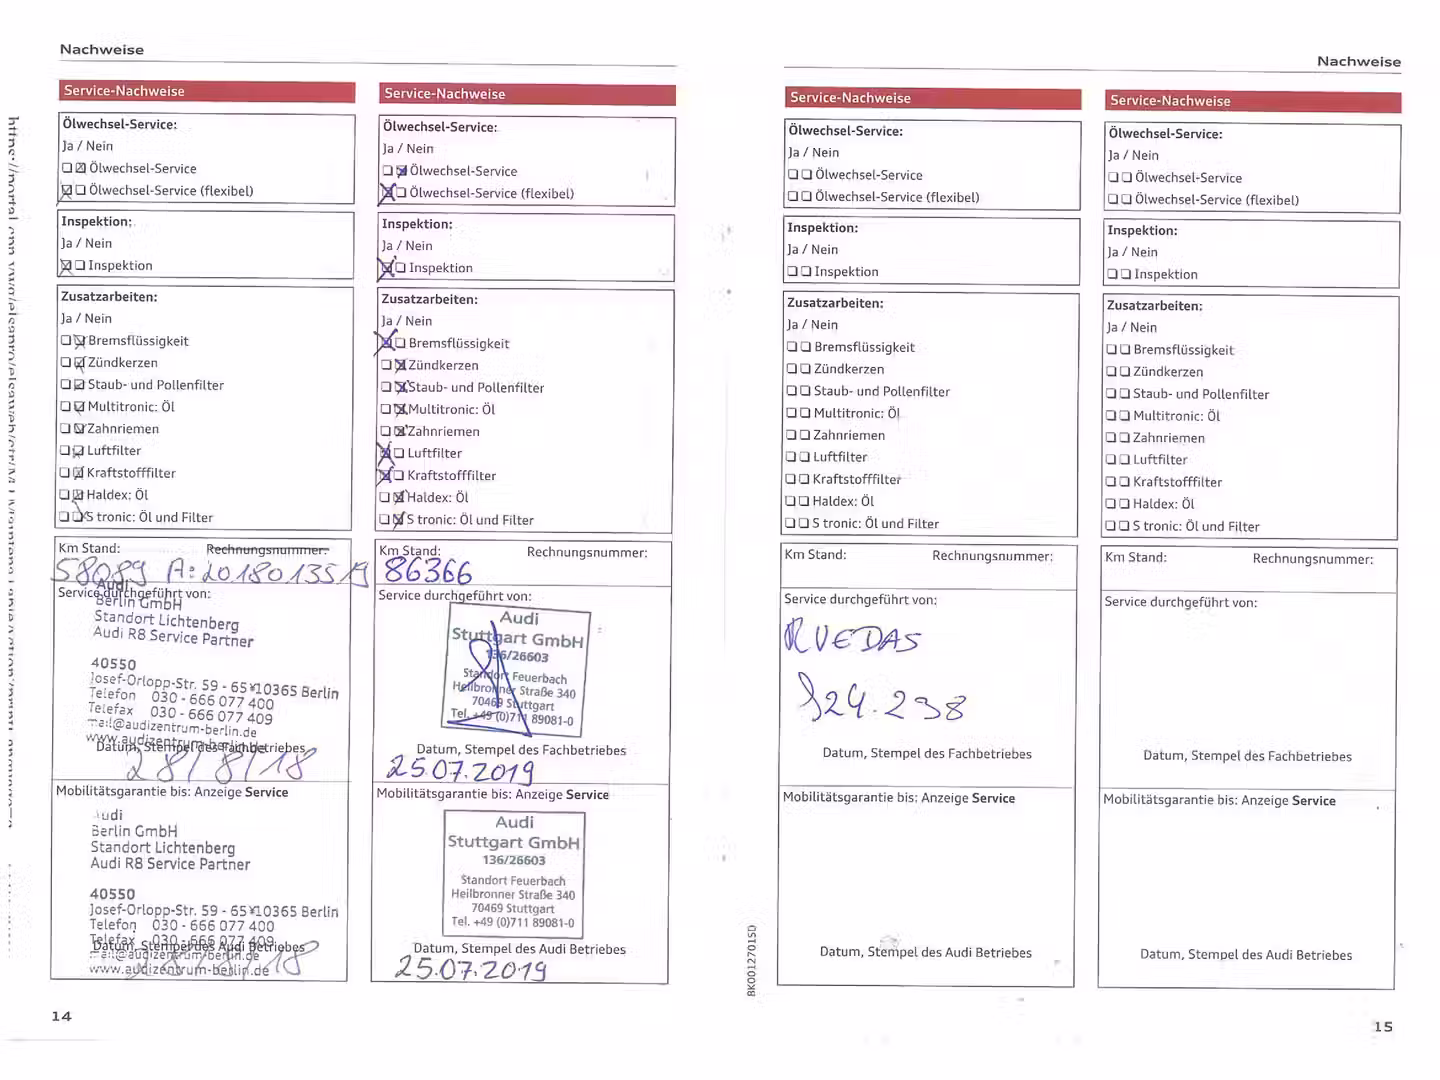 Nachweise
Service-Nachweise
Ölwechsel-Service:
Ja / Nein
Ölwechsel-Service
Ölwechsel-Service (flexibel)
Inspektion:
Ja / Nein
Inspektion
Zusatzarbeiten:
Ja / Nein
Bremsflüssigkeit
Zündkerzen
Staub- und Pollenfilter
Multitronic: Öl
Zahnriemen
Luftfilter
Kraftstofffilter
Haldex: Öl
S tronic: Öl und Filter
Km Stand: Rechnungsnummer:
58089 A: 2018013519
Service durchgeführt von:
Audi
Berlin GmbH
Standort Lichtenberg
Audi R8 Service Partner
40550
Josef-Orlopp-Str. 59 - 65 10365 Berlin
Telefon 030 - 666 077 400
Telefax 030 - 666 077 409
mail@audizentrum-berlin.de
www.audizentrum-berlin.de
Datum, Stempel des Fachbetriebes
28/8/18
Mobilitätsgarantie bis: Anzeige Service
Audi
Berlin GmbH
Standort Lichtenberg
Audi R8 Service Partner
40550
Josef-Orlopp-Str. 59 - 65 10365 Berlin
Telefon 030 - 666 077 400
Telefax 030 - 666 077 409
Datum, Stempel des Audi Betriebes
mail@audizentrum-berlin.de
www.audizentrum-berlin.de
28/8/18
14
Service-Nachweise
Ölwechsel-Service:
Ja / Nein
Ölwechsel-Service
Ölwechsel-Service (flexibel)
Inspektion:
Ja / Nein
Inspektion
Zusatzarbeiten:
Ja / Nein
Bremsflüssigkeit
Zündkerzen
Staub- und Pollenfilter
Multitronic: Öl
Zahnriemen
Luftfilter
Kraftstofffilter
Haldex: Öl
S tronic: Öl und Filter
Km Stand: Rechnungsnummer:
86366
Service durchgeführt von:
Audi
Stuttgart GmbH
136/26603
Standort Feuerbach
Heilbronner Straße 340
70469 Stuttgart
Tel. +49 (0)711 89081-0
Datum, Stempel des Fachbetriebes
25.07.2019
Mobilitätsgarantie bis: Anzeige Service
Audi
Stuttgart GmbH
136/26603
Standort Feuerbach
Heilbronner Straße 340
70469 Stuttgart
Tel. +49 (0)711 89081-0
Datum, Stempel des Audi Betriebes
25.07.2019
Nachweise
Service-Nachweise
Ölwechsel-Service:
Ja / Nein
Ölwechsel-Service
Ölwechsel-Service (flexibel)
Inspektion:
Ja / Nein
Inspektion
Zusatzarbeiten:
Ja / Nein
Bremsflüssigkeit
Zündkerzen
Staub- und Pollenfilter
Multitronic: Öl
Zahnriemen
Luftfilter
Kraftstofffilter
Haldex: Öl
S tronic: Öl und Filter
Km Stand: Rechnungsnummer:
Service durchgeführt von:
RUEDAS
Datum, Stempel des Fachbetriebes
Mobilitätsgarantie bis: Anzeige Service
Datum, Stempel des Audi Betriebes
8K0012701SD
Service-Nachweise
Ölwechsel-Service:
Ja / Nein
Ölwechsel-Service
Ölwechsel-Service (flexibel)
Inspektion:
Ja / Nein
Inspektion
Zusatzarbeiten:
Ja / Nein
Bremsflüssigkeit
Zündkerzen
Staub- und Pollenfilter
Multitronic: Öl
Zahnriemen
Luftfilter
Kraftstofffilter
Haldex: Öl
S tronic: Öl und Filter
Km Stand: Rechnungsnummer:
Service durchgeführt von:
Datum, Stempel des Fachbetriebes
Mobilitätsgarantie bis: Anzeige Service
Datum, Stempel des Audi Betriebes
15